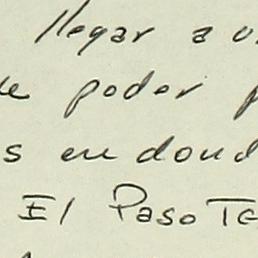 llegar a
poder
en dond
El Paso Te